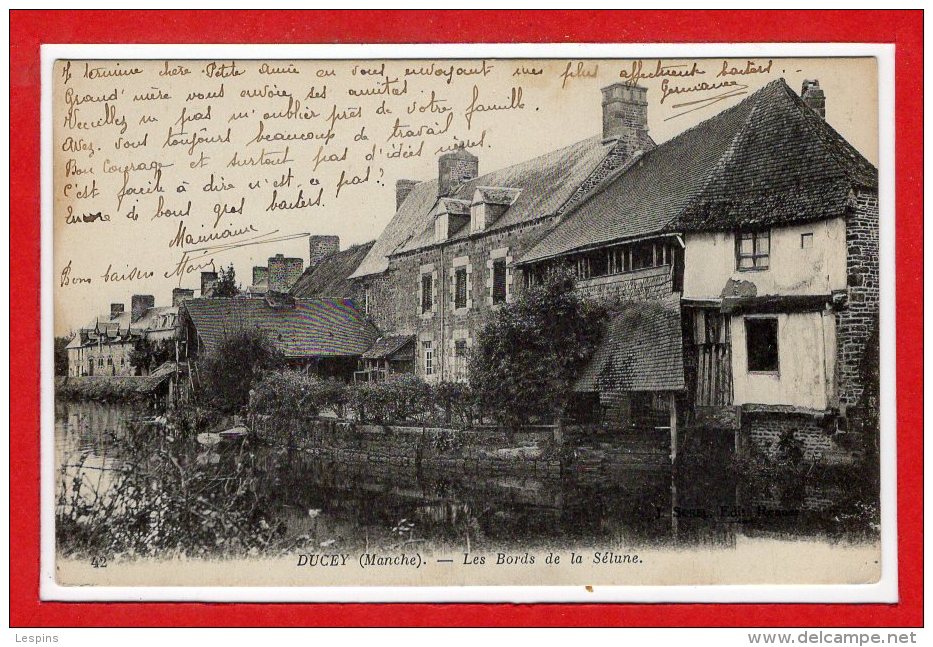 Je termine chère Petite Amie en vous envoyant mes plus affectueux baisers.
Germaine
Grand'mère vous envoie ses amitiés.
Veuillez m pas m'oublier près de votre famille.
Avez vous toujours beaucoup de travail
Bon courage et surtout pas d'idées noires.
C'est facile à dire n'est. ce pas?
Encore de bons gros baisers.
Bons baisers
42
DUCEY (Manche). — Les Bords de la Sélune.
Lespins
http://www.delcampe.net